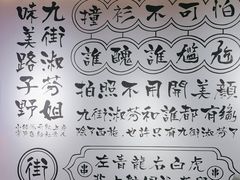 九街淑芬姐
味美路子野
撞衫不可怕
誰醜誰尴尬
拍照不用開美顏
九街淑芬和誰都有緣
除了西施，也許只有九街淑芬了
街
左青龍右白虎